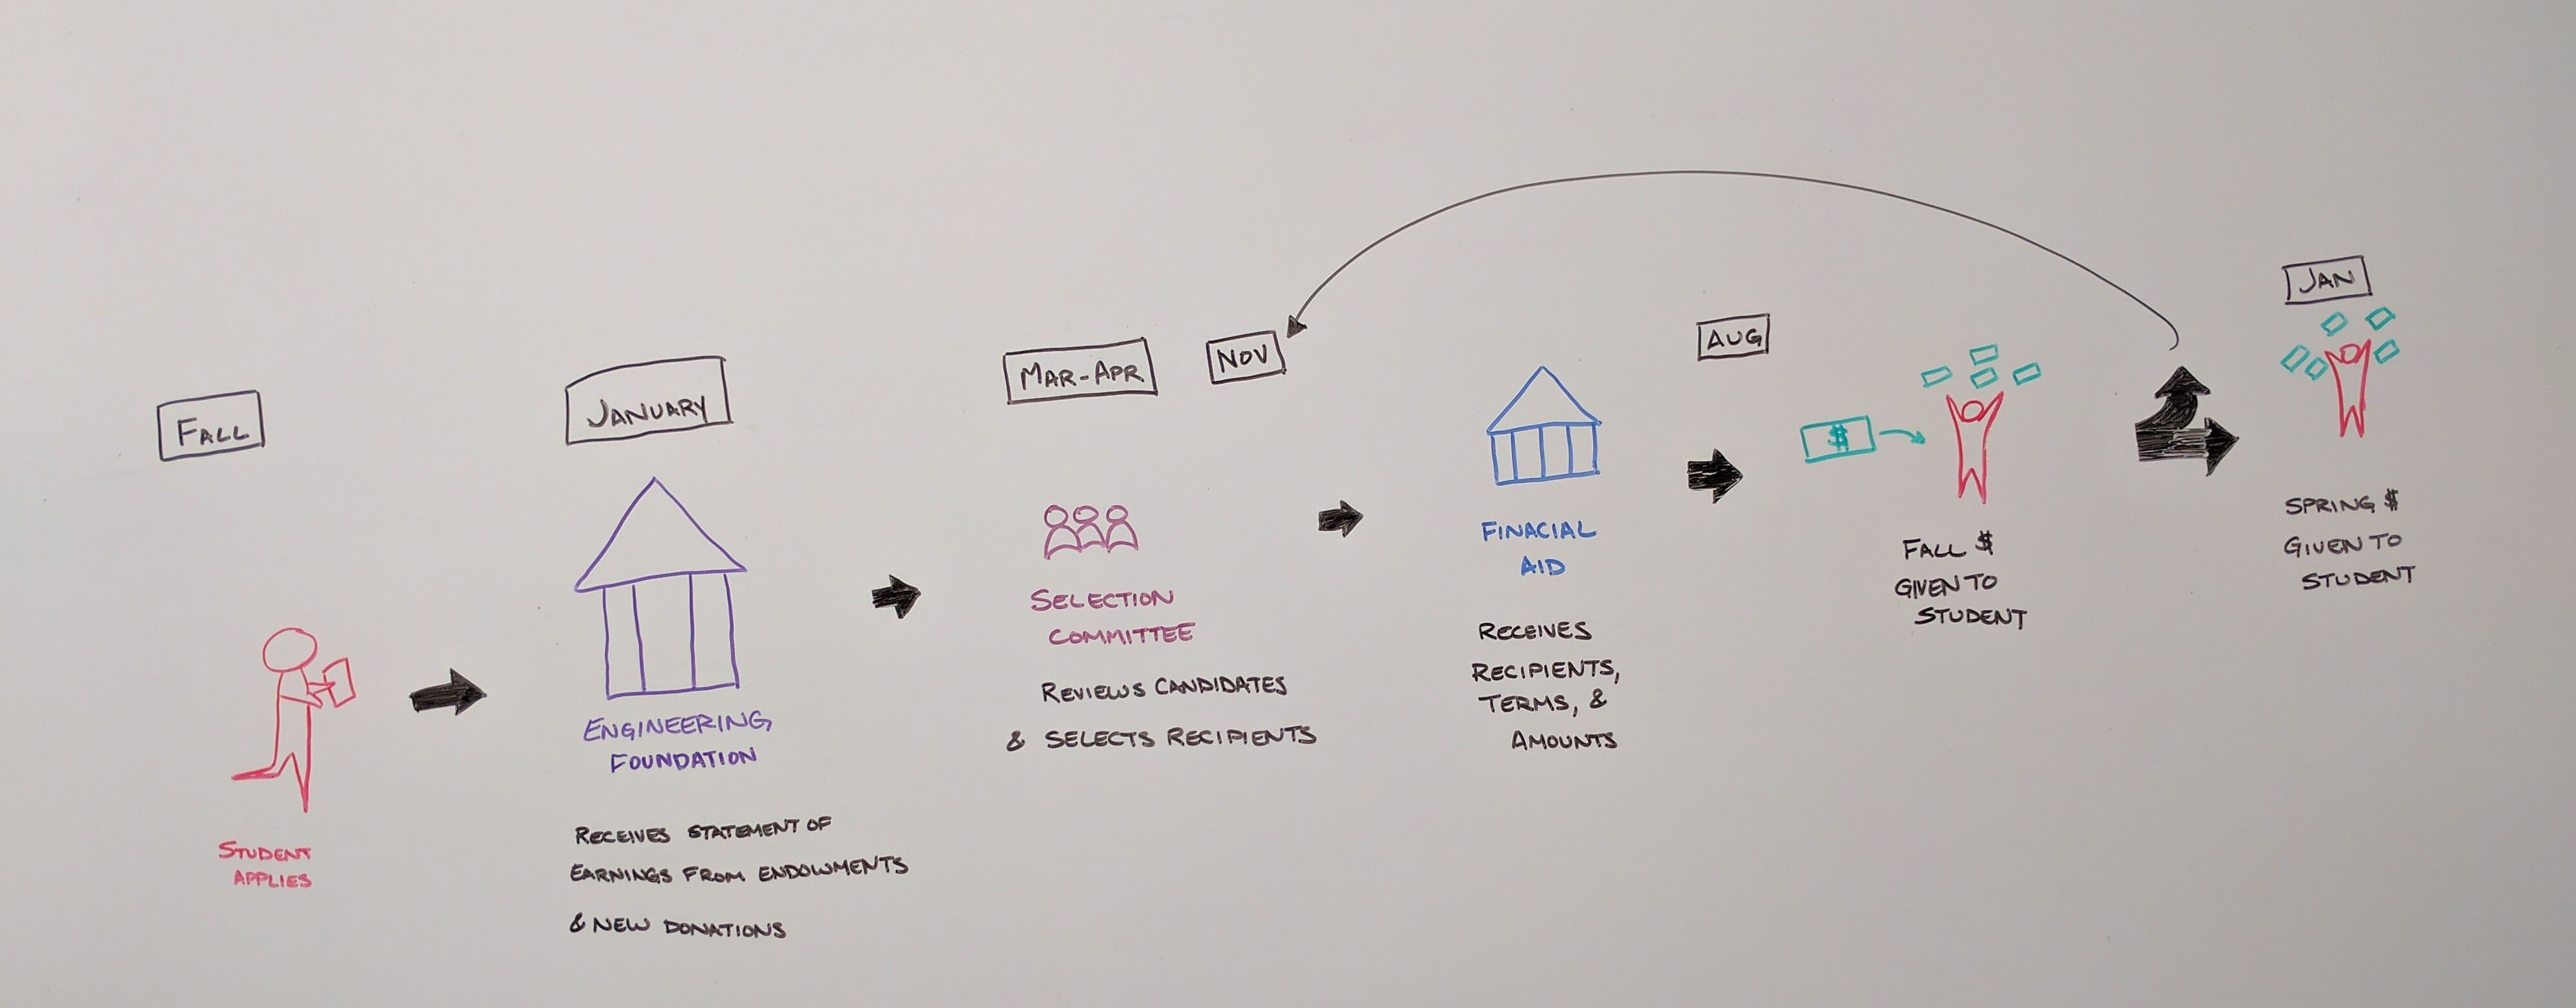 FALL
STUDENT
APPLIES
JANUARY
ENGINEERING
FOUNDATION
RECEIVES STATEMENT OF
EARNINGS FROM ENDOWMENTS
& NEW DONATIONS
MAR-APR
NOV
SELECTION
COMMITTEE
REVIEWS CANDIDATES
& SELECTS RECIPIENTS
FINACIAL
AID
RECEIVES
RECIPIENTS,
TERMS, &
AMOUNTS
AUG
$
FALL $
GIVEN TO
STUDENT
JAN
SPRING $
GIVEN TO
STUDENT